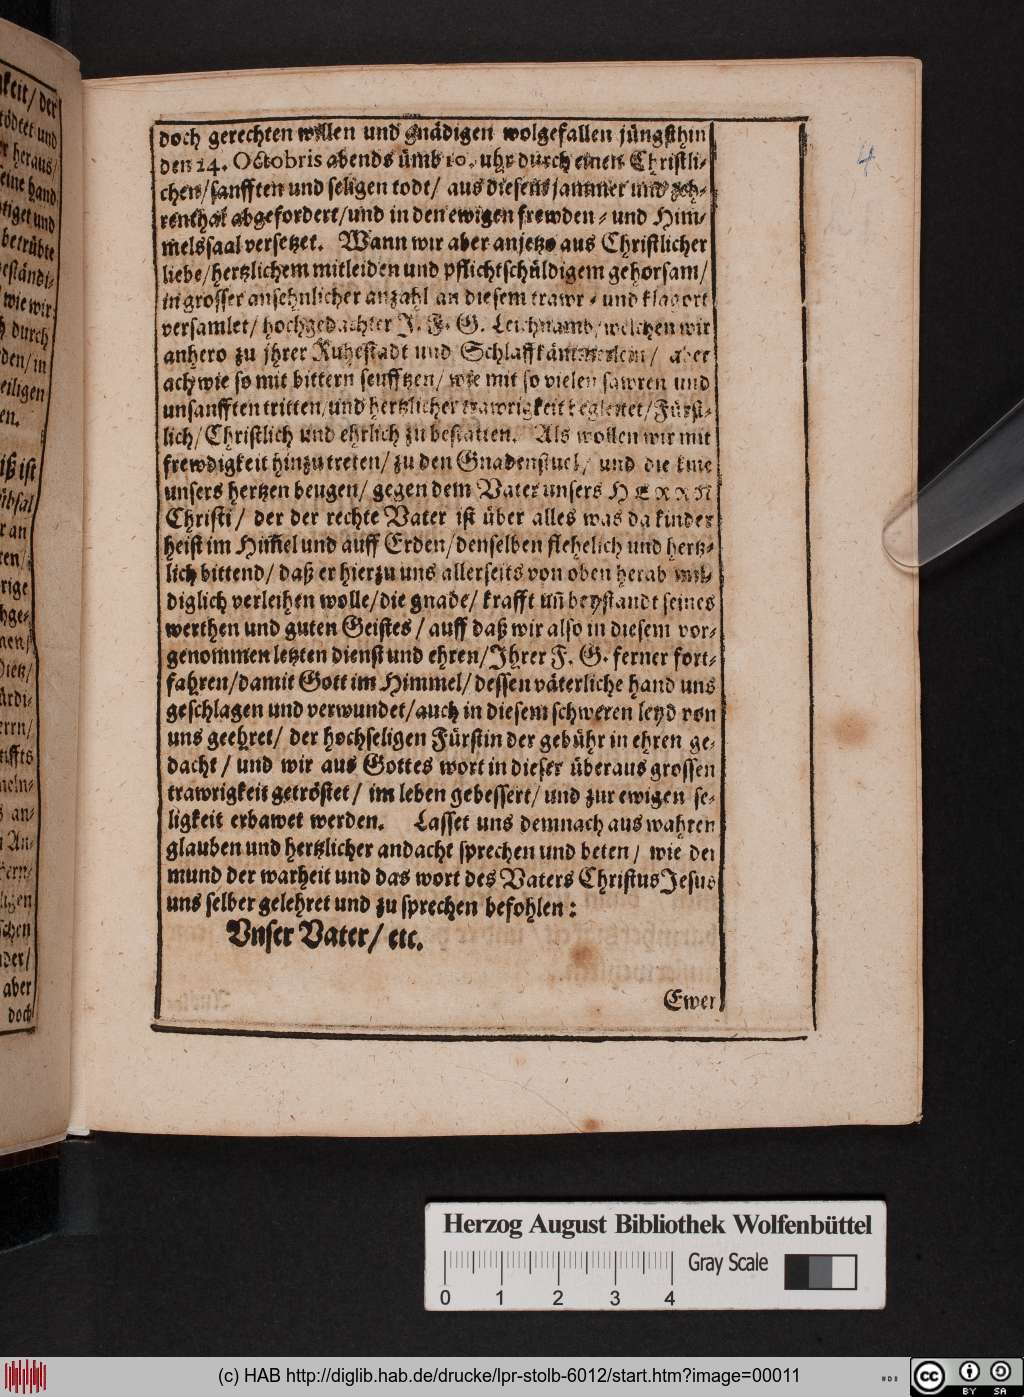 doch gerechten willen und gnädigen wolgefallen jüngsthin
den 24. Octobris abends ümb 10. uhr durch einen Christli-
chen/ sanfften und seligen todt/ aus diesem jammer und zeh-
renthal abgefordert/ und in den ewigen frewden- und Him-
melssaal versetzet. Wann wir aber anjetzo aus Christlicher
liebe/ hertzlichem mitleiden und pflichtschüldigem gehorsam/
in grosser ansehnlicher anzahl an diesem trawr- und klagort
versamlet/ hochgedachter J. F. G. Leichnamb/ welchen wir
anhero zu jhrer Ruhestadt und Schlaffkämmerlein/ aber
ach wie so mit bittern seufftzen/ wie mit so vielen sawren und
unsanfften tritten/ und hertzlicher trawrigkeit begleitet/ Fürst-
lich/ Christlich und ehrlich zu bestatten. Als wollen wir mit
frewdigkeit hinzu treten/ zu den Gnadenstuel/ und die knie
unsers hertzen beugen/ gegen dem Vater unsers HERRN
Christi/ der der rechte Vater ist über alles was da kinder
heist im Him̃el und auff Erden/ denselben flehelich und hertz-
lich bittend/ daß er hierzu uns allerseits von oben herab mil-
diglich verleihen wolle/ die gnade/ krafft uñ beystandt seines
werthen und guten Geistes/ auff daß wir also in diesem vor-
genommen letzten dienst und ehren/ Jhrer F. G. ferner fort-
fahren/ damit Gott im Himmel/ dessen väterliche hand uns
geschlagen und verwundet/ auch in diesem schweren leyd von
uns geehret/ der hochseligen Fürstin der gebühr in ehren ge-
dacht/ und wir aus Gottes wort in dieser überaus grossen
trawrigkeit getröstet/ im leben gebessert/ und zur ewigen se-
ligkeit erbawet werden. Lasset uns demnach aus wahren
glauben und hertzlicher andacht sprechen und beten/ wie der
mund der warheit und das wort des Vaters Christus Jesus
uns selber gelehret und zu sprechen befohlen:
Vnser Vater/ etc.
Ewer
4
Herzog August Bibliothek Wolfenbüttel
Gray Scale
0 1 2 3 4
(c) HAB http://diglib.hab.de/drucke/lpr-stolb-6012/start.htm?image=00011
cc BY SA